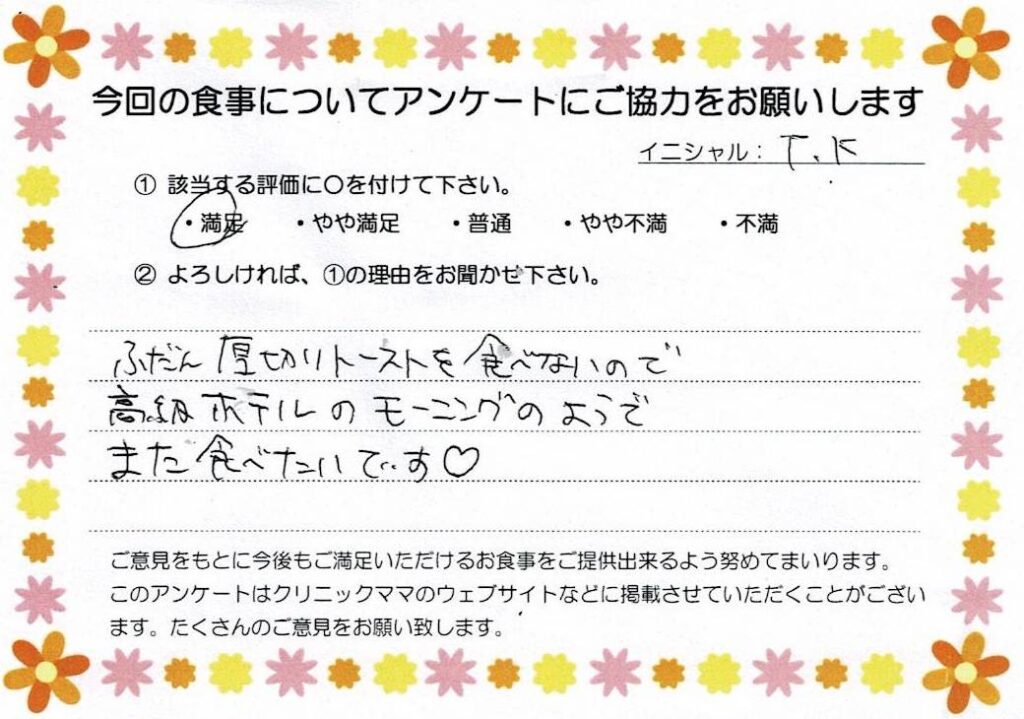 今回の食事についてアンケートにご協力をお願いします
イニシャル： T.K
① 該当する評価に〇を付けて下さい。
・満足 ・やや満足 ・普通 ・やや不満 ・不満
② よろしければ、①の理由をお聞かせ下さい。
ふだん厚切りトーストを食べないので
高級ホテルのモーニングのようで
また食べたいです♡
ご意見をもとに今後もご満足いただけるお食事をご提供出来るよう努めてまいります。
このアンケートはクリニックママのウェブサイトなどに掲載させていただくことがござい
ます。たくさんのご意見をお願い致します。